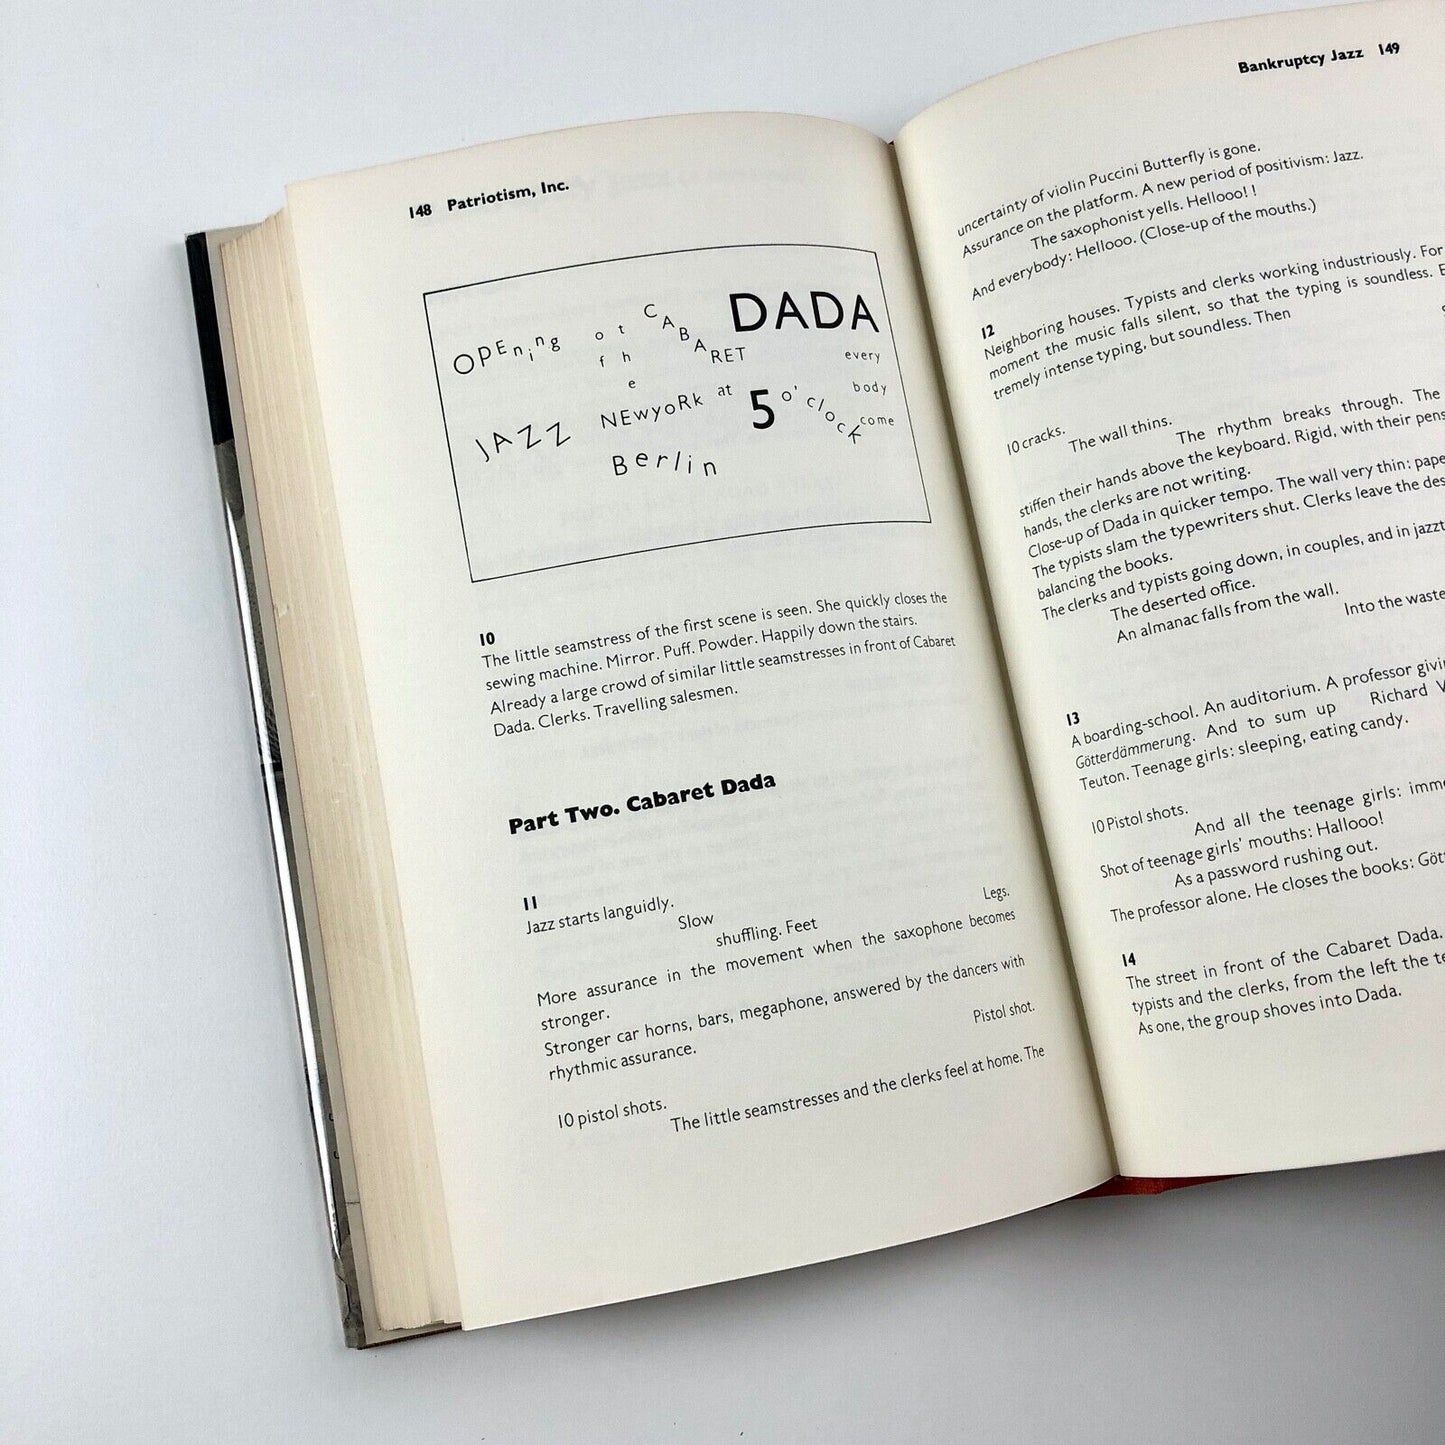 148 Patriotism, Inc.
OPEning of the CABARET DADA
JAZZ NEwyoRk at 5 o'clock every body come
Berlin
10
The little seamstress of the first scene is seen. She quickly closes the
sewing machine. Mirror. Puff. Powder. Happily down the stairs.
Already a large crowd of similar little seamstresses in front of Cabaret
Dada. Clerks. Travelling salesmen.
Part Two. Cabaret Dada
11
Jazz starts languidly.
Slow
shuffling. Feet
Legs.
More assurance in the movement when the saxophone becomes
stronger.
Stronger car horns, bars, megaphone, answered by the dancers with
rhythmic assurance.
Pistol shot.
10 pistol shots.
The little seamstresses and the clerks feel at home. The
Bankruptcy Jazz 149
uncertainty of violin Puccini Butterfly is gone.
Assurance on the platform. A new period of positivism: Jazz.
The saxophonist yells. Hellooo! !
And everybody: Hellooo. (Close-up of the mouths.)
12
Neighboring houses. Typists and clerks working industriously. For
moment the music falls silent, so that the typing is soundless.
tremely intense typing, but soundless. Then
10 cracks.
The wall thins.
The rhythm breaks through. The
stiffen their hands above the keyboard. Rigid, with their pens
hands, the clerks are not writing.
Close-up of Dada in quicker tempo. The wall very thin: pape
The typists slam the typewriters shut. Clerks leave the des
balancing the books.
The clerks and typists going down, in couples, and in jazzt
The deserted office.
An almanac falls from the wall.
Into the waste
13
A boarding-school. An auditorium. A professor givi
Götterdämmerung. And to sum up Richard
Teuton. Teenage girls: sleeping, eating candy.
10 Pistol shots.
And all the teenage girls: imme
Shot of teenage girls' mouths: Hallooo!
As a password rushing out.
The professor alone. He closes the books: Göt
14
The street in front of the Cabaret Dada.
typists and the clerks, from the left the te
As one, the group shoves into Dada.